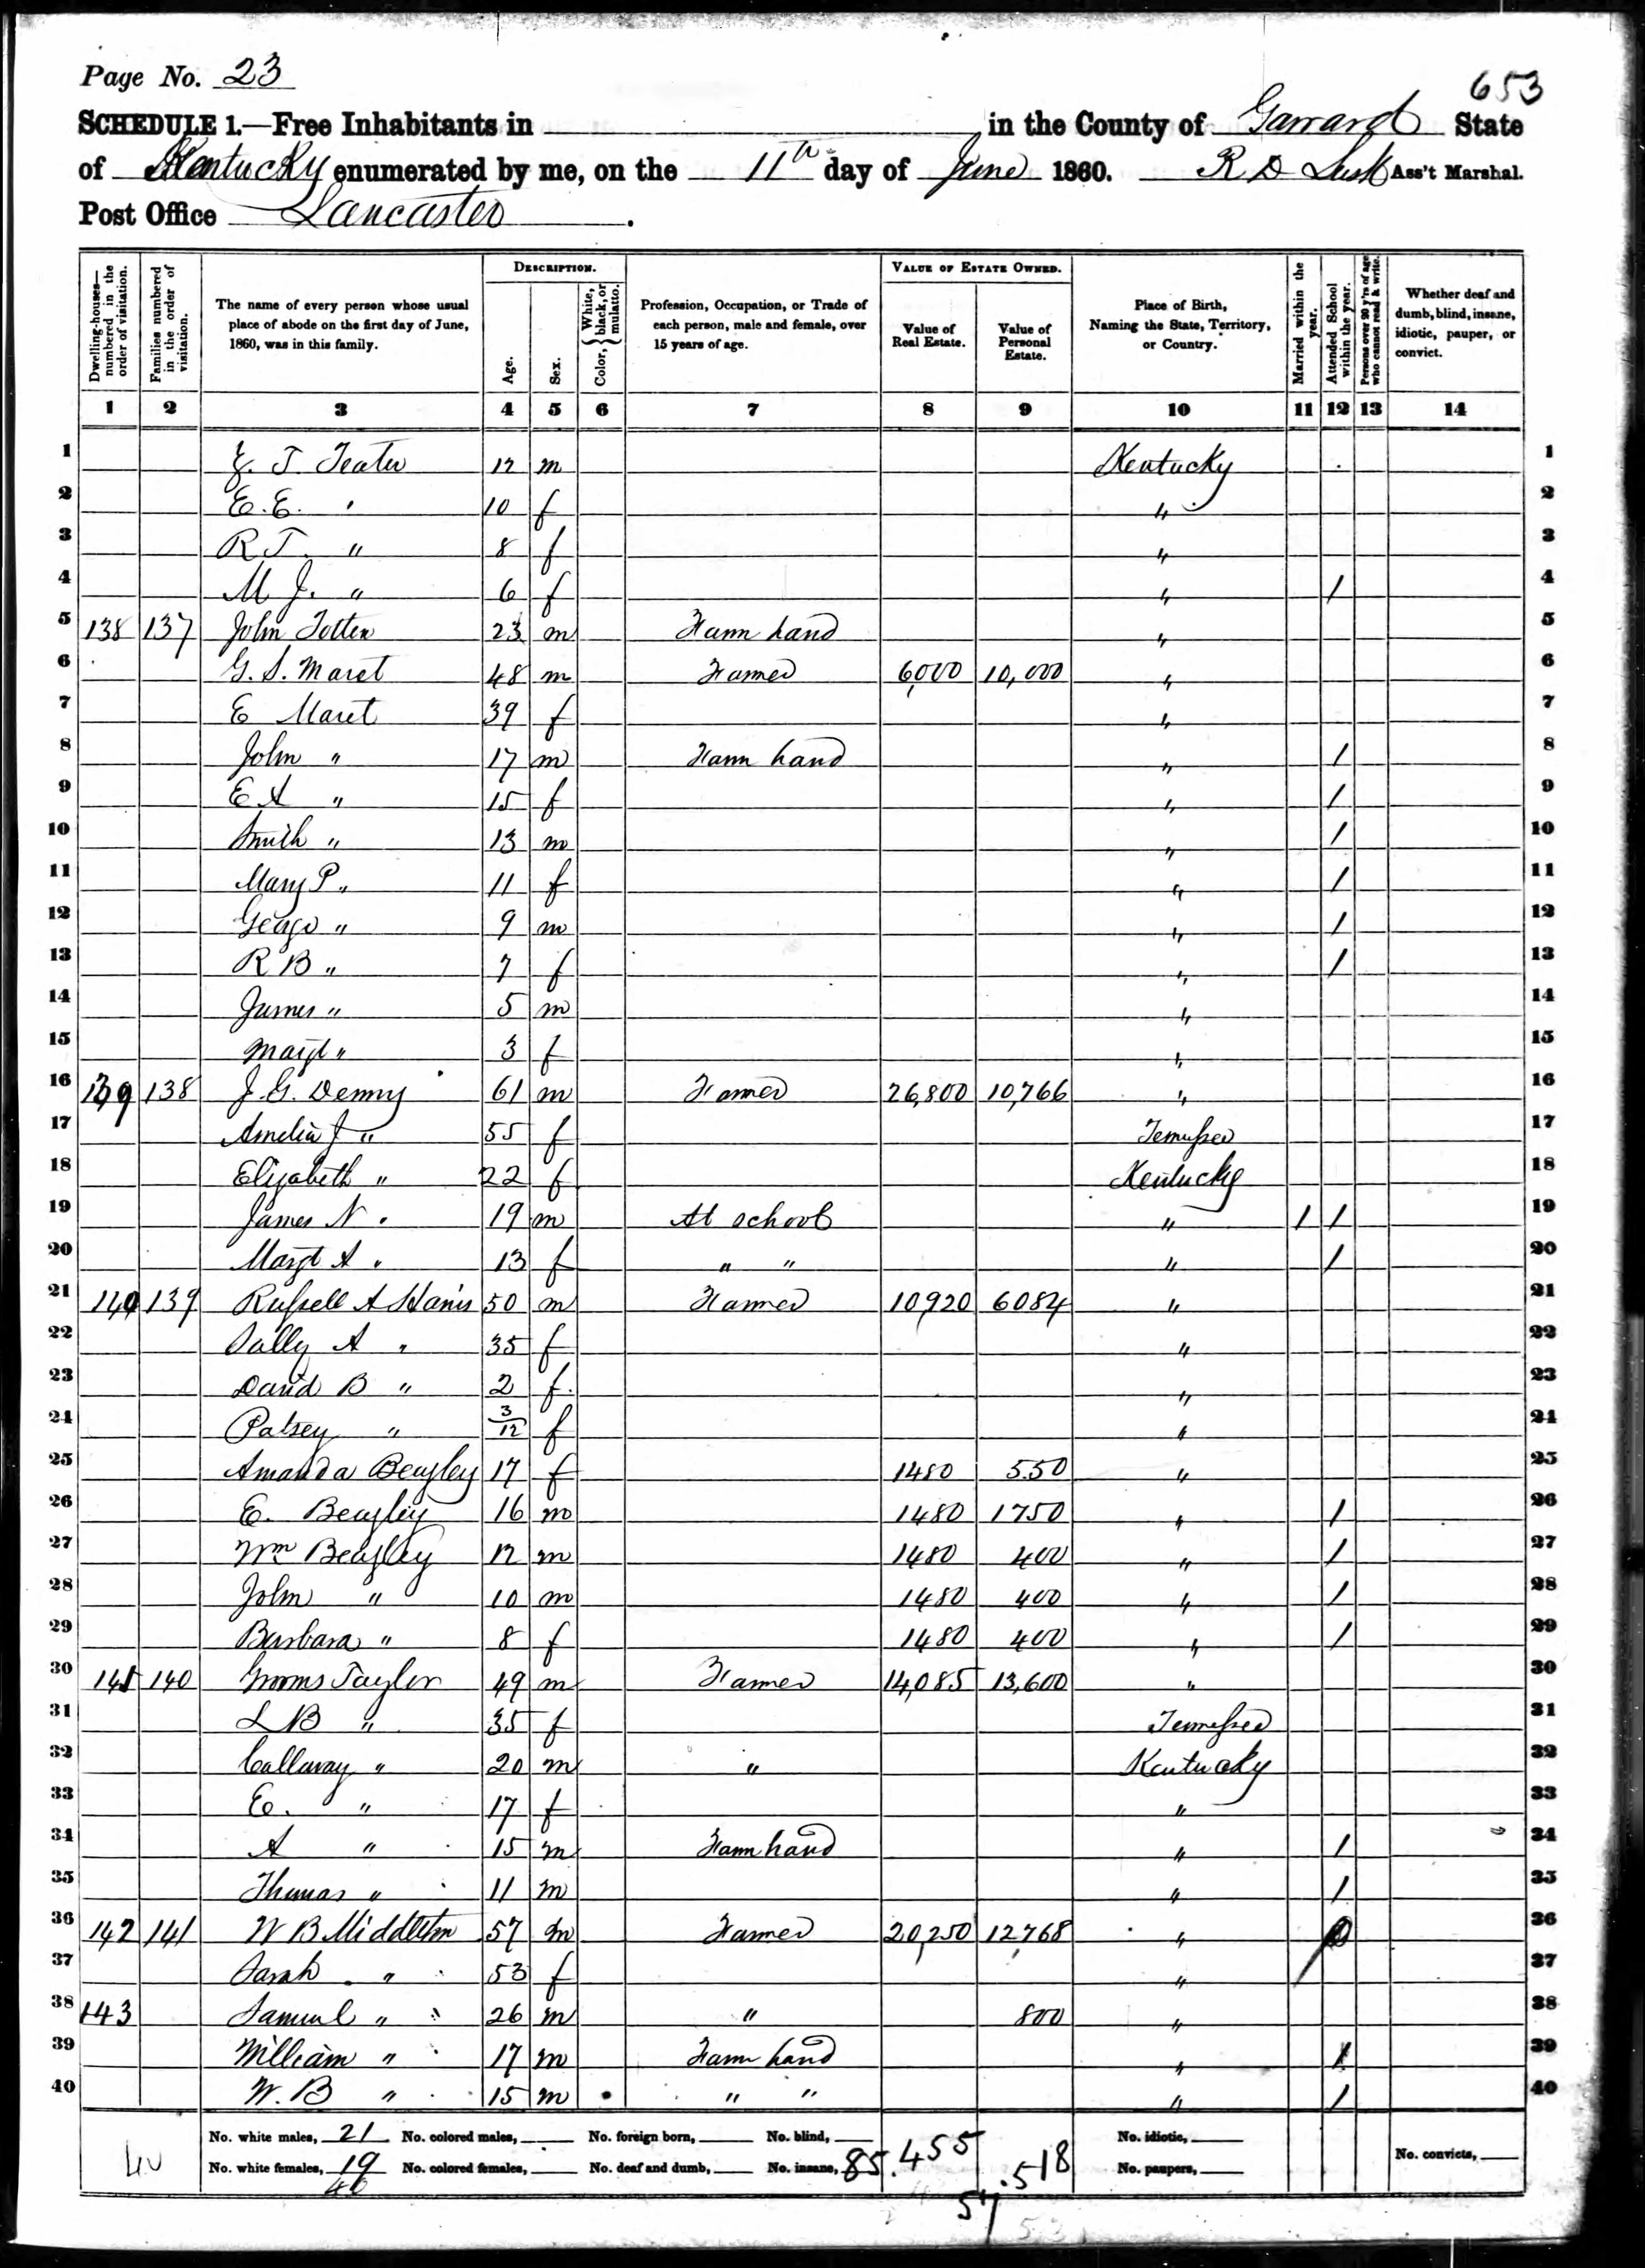 Page No. 23
653
SCHEDULE 1.—Free Inhabitants in in the County of Garrard State
of Kentucky enumerated by me, on the 11th day of June 1860. R D Lusk Ass't Marshal.
Post Office Lancaster.
Dwelling-houses—numbered in the order of visitation.
Families numbered in the order of visitation.
The name of every person whose usual place of abode on the first day of June, 1860, was in this family.
DESCRIPTION.
Age.
Sex.
Color, { White, black, or mulatto.
Profession, Occupation, or Trade of each person, male and female, over 15 years of age.
VALUE OF ESTATE OWNED.
Value of Real Estate.
Value of Personal Estate.
Place of Birth, Naming the State, Territory, or Country.
Married within the year.
Attended School within the year.
Persons over 20 y'rs of age who cannot read & write.
Whether deaf and dumb, blind, insane, idiotic, pauper, or convict.
1 2 3 4 5 6 7 8 9 10 11 12 13 14
1 J. T. Teater 12 m Kentucky 1
2 E. E. " 10 f " 2
3 R T. " 8 f " 3
4 M J. " 6 f " / 4
5 138 137 John Totten 23 m Farm hand " 5
6 G. S. Maret 48 m Farmer 6,000 10,000 " 6
7 E Maret 39 f " 7
8 John " 17 m Farm hand " / 8
9 E A " 15 f " / 9
10 Smith " 13 m " / 10
11 Mary P " 11 f " / 11
12 George " 9 m " / 12
13 R B " 7 f " / 13
14 James " 5 m " 14
15 Margt " 3 f " 15
16 139 138 J. G. Denny 61 m Farmer 26,800 10,766 " 16
17 Amelia J " 55 f Tennessee 17
18 Elizabeth " 22 f Kentucky 18
19 James N " 19 m At school " / / 19
20 Margt A " 13 f " " " / 20
21 140 139 Russell A Harris 50 m Farmer 10,920 6084 " 21
22 Sally A " 35 f " 22
23 David B " 2 f. " 23
24 Patsey " 3/12 f " 24
25 Amanda Beazley 17 f 1480 550 " 25
26 E. Beazley 16 m 1480 1750 " / 26
27 Wm Beazley 12 m 1480 400 " / 27
28 John " 10 m 1480 400 " / 28
29 Barbara " 8 f 1480 400 " / 29
30 141 140 Grooms Taylor 49 m Farmer 14,085 13,600 " 30
31 L B " 35 f Tennessee 31
32 Callaway " 20 m " Kentucky 32
33 E. " 17 f " 33
34 A " 15 m Farm hand " / 34
35 Thomas " 11 m " / 35
36 142 141 W B Middleton 57 m Farmer 20,250 12,768 " 36
37 Sarah " 53 f " 37
38 143 Samuel " 26 m " 800 " 38
39 William " 17 m Farm hand " / 39
40 W. B " 15 m " " " / 40
No. white males, 21 No. colored males, No. foreign born, No. blind, No. idiotic,
40 No. white females, 19 No. colored females, No. deaf and dumb, No. insane, 85.455 57.518 No. paupers, No. convicts,
40